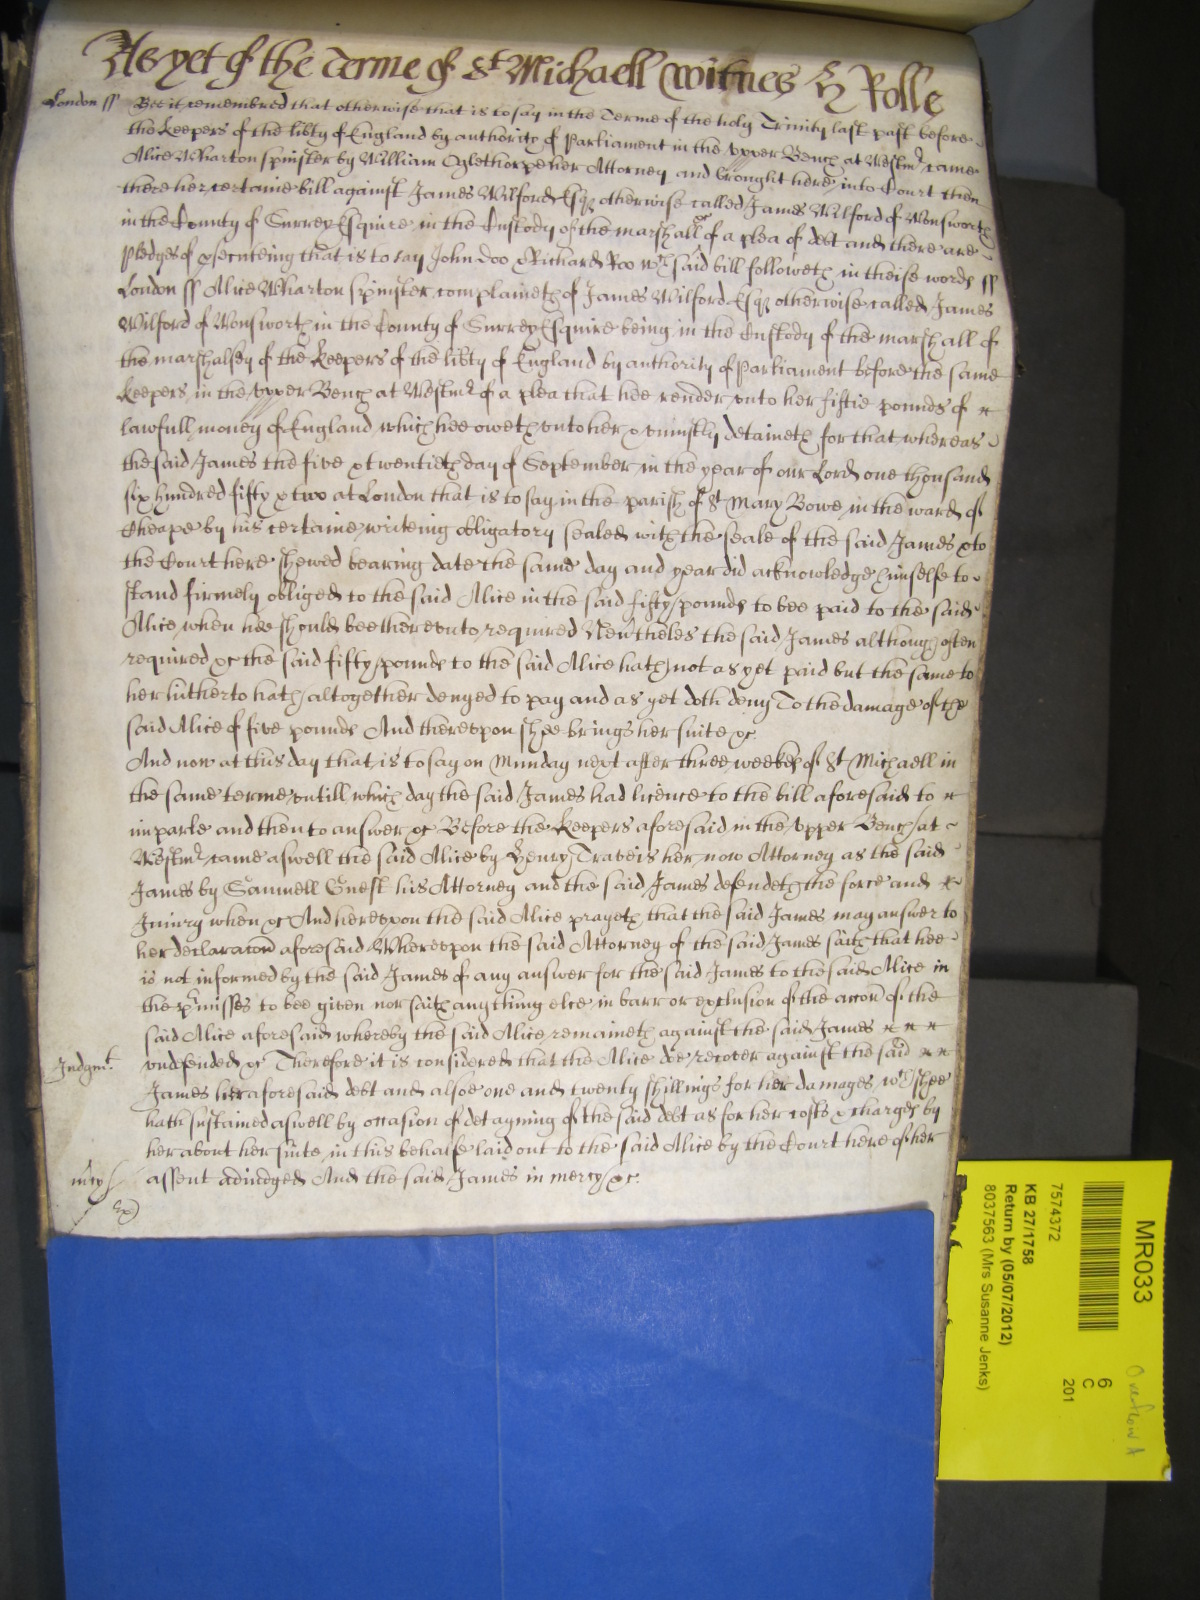 As yet of the Terme of St Michaell Witnes H Rolle
London ss Bee it remembred that otherwise that is to say in the Terme of the holy Trinity last past before
the Keepers of the libty of England by authority of Parliament in the Vpper Bench at Westmr came
Alice Wharton spinster by William Oglethorpe her Attorney and brought here into Court then
there her certaine bill against James Wilford Esqr otherwise called James Wilford of Wonsworth
in the County of Surrey Esquire in the Custody of the marshall &c of a plea of debt and there are
pledges of psecuteing that is to say John Doo & Richard Roo wch said bill followeth in theise words ss
London ss Alice Wharton spinster complaineth of James Wilford Esqr otherwise called James
Wilford of Wonsworth in the County of Surrey Esquire being in the Custody of the marshall of
the marshalsey of the Keepers of the libty of England by authority of Parliament before the same
Keepers in the Vpper Bench at Westmr of a plea that hee render vnto her fiftie pounds of
lawfull money of England which hee oweth vnto her & vniustly detaineth for that whereas
the said James the five & twentieth day of September in the year of our Lord one thousand
six hundred fifty & two at London that is to say in the parish of St Mary Bowe in the ward of
Cheape by his certaine writeing obligatory sealed with the seale of the said James & to
the Court here shewed bearing date the same day and year did acknowledge himselfe to
stand firmely obliged to the said Alice in the said fifty pounds to bee paid to the said
Alice when hee should bee therevnto required Nevtheles the said James although often
required &c the said fifty pounds to the said Alice hath not as yet paid but the same to
her hitherto hath altogether denyed to pay and as yet doth deny To the damage of the
said Alice of five pounds And therevpon shee brings her suite &c
And now at this day that is to say on Munday next after three weekes of St Michaell in
the same terme vntill which day the said James had licence to the bill aforesaid to
imparle and then to answer &c Before the Keepers aforesaid in the Vpper Bench at
Westmr came aswell the said Alice by Henry Traveis her now Attorney as the said
James by Samuell Guest his Attorney and the said James defendeth the force and
Iniury when &c And herevpon the said Alice prayeth that the said James may answer to
her declaracon aforesaid Wherevpon the said Attorney of the said James saith that hee
is not informed by the said James of any answer for the said James to the said Alice in
the pmisses to bee given nor saith anything else in barr or exclusion of the accon of the
said Alice aforesaid whereby the said Alice remaineth against the said James
Judgmt vndefended &c Therefore it is considered that the Alice doe recover against the said
James her aforesaid debt and alsoe one and twenty shillings for her damages wch shee
hath sustained aswell by occasion of detayning of the said debt as for her costs & charges by
her about her suite in this behalfe laid out to the said Alice by the Court here of her
mcy assent adiudged And the said James in mercy &c
MR033
Overflow A
6
C
201
7574372
KB 27/1758
Return by (05/07/2012)
8037563 (Mrs Susanne Jenks)